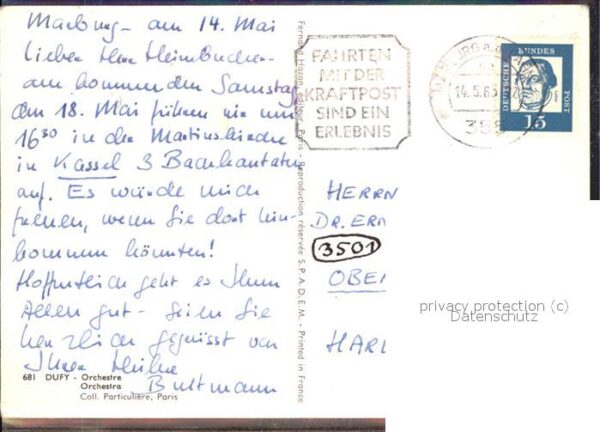 Marburg - am 14. Mai
Lieber Herr Heimbucher -
am kommenden Samstag
dem 18. Mai führen wir um
16³⁰ in der Martinskirche
in Kassel 3 Bachkantaten
auf. Es würde mich
freuen, wenn Sie dort hin-
kommen könnten!
Hoffentlich geht es Ihnen
Allen gut - seien Sie
herzlich gegrüsst von
Ihrer Heike
Bultmann
681 DUFY - Orchestre
Orchestra
Coll. Particulière, Paris
Fernand Hazan, Editeur, Paris - Reproduction réservée S.P.A.D.E.M. - Printed in France
FAHRTEN
MIT DER
KRAFTPOST
SIND EIN
ERLEBNIS
14.5.63
355
DEUTSCHE
BUNDES
POST
15
HERRN
DR. ER
3501
OBE
HARL
privacy protection (c)
Datenschutz